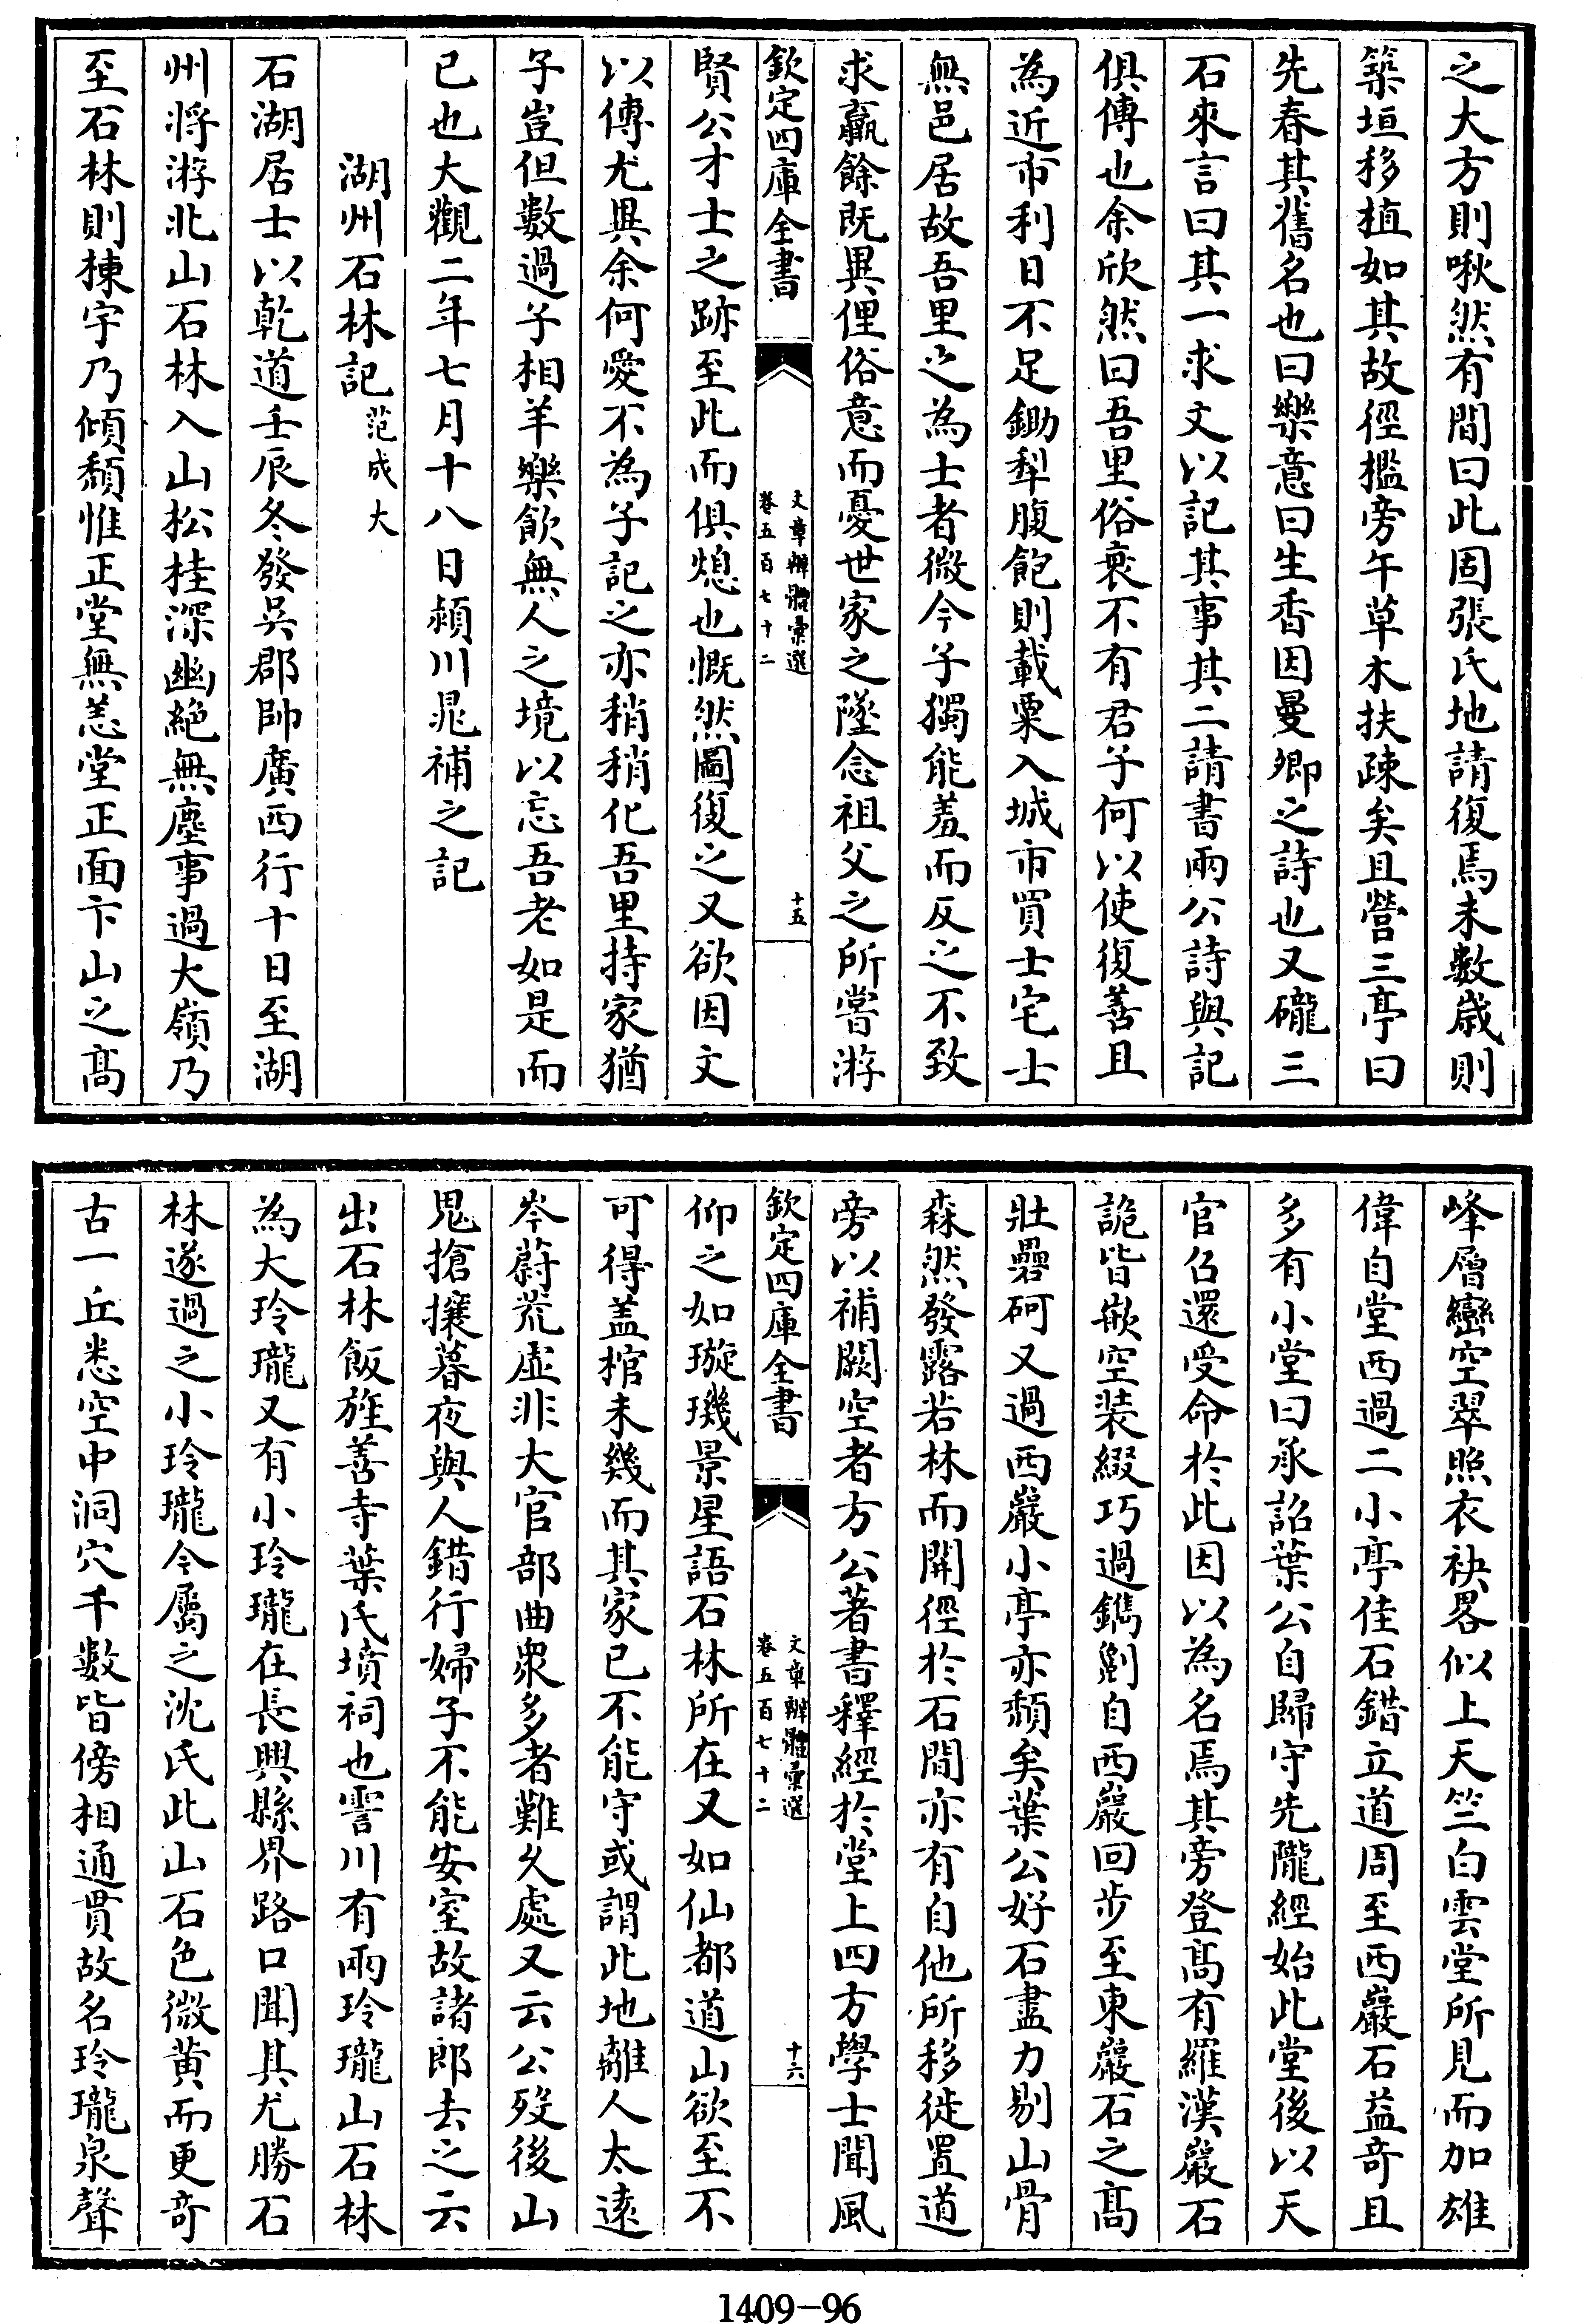 之大方則啾然有間曰此固張氏地請復焉未數歲則
築垣移植如其故徑檻旁午草木扶疎矣且營三亭曰
先春其舊名也曰樂意曰生香因曼卿之詩也又礲三
石來言曰其一求文以記其事其二請書兩公詩與記
俱傳也余欣然曰吾里俗衰不有君子何以使復善且
為近市利日不足鋤犁腹飽則載粟入城市買士宅士
無邑居故吾里之為士者微今子獨能羞而反之不致
求贏餘既異俚俗意而憂世家之墜念祖父之所嘗游
欽定四庫全書
文章辨體彙選
卷五百七十二
十五
賢公才士之跡至此而俱熄也慨然圖復之又欲因文
以傳尤異余何愛不為子記之亦稍稍化吾里持家猶
子豈但數過子相羊樂飲無人之境以忘吾老如是而
已也大觀二年七月十八日潁川晁補之記
湖州石林記范成大
石湖居士以乾道壬辰冬發吳郡帥廣西行十日至湖
州將游北山石林入山松桂深幽絶無塵事過大嶺乃
至石林則棟宇乃傾頹惟正堂無恙堂正面卞山之髙
峰層巒空翠照衣袂畧似上天竺白雲堂所見而加雄
偉自堂西過二小亭佳石錯立道周至西巖石益奇且
多有小堂曰承詔葉公自歸守先隴經始此堂後以天
官召還受命於此因以為名焉其旁登髙有羅漢巖石
詭皆嵌空装綴巧過鐫劖自西巖回步至東巖石之髙
壯礨砢又過西巖小亭亦頹矣葉公好石盡力剔山骨
森然發露若林而開徑於石間亦有自他所移徙置道
旁以補闕空者方公著書釋經於堂上四方學士聞風
欽定四庫全書
文章辨體彙選
卷五百七十二
十六
仰之如璇璣景星語石林所在又如仙都道山欲至不
可得盖棺未幾而其家已不能守或謂此地離人太遠
岑蔚荒虚非大官部曲衆多者難久處又云公歿後山
鬼搶攘暮夜與人錯行婦子不能安室故諸郎去之云
出石林飯旌善寺葉氏墳祠也霅川有兩玲瓏山石林
為大玲瓏又有小玲瓏在長興縣界路口聞其尤勝石
林遂過之小玲瓏今屬之沈氏此山石色微黄而更竒
古一丘悉空中洞穴千數皆傍相通貫故名玲瓏泉聲
1409-96